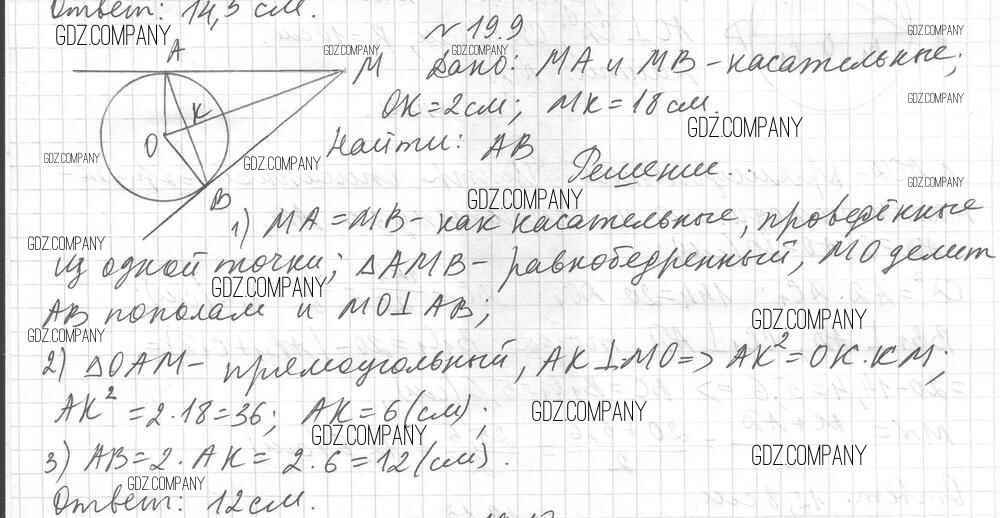 Ответ: 14,5 см.
GDZ.COMPANY
№ 19.9
GDZ.COMPANY
GDZ.COMPANY
GDZ.COMPANY
A
M
Дано: MA и MB - касательные;
K
OK = 2 см; MK = 18 см.
GDZ.COMPANY
GDZ.COMPANY
O
GDZ.COMPANY
GDZ.COMPANY
Найти: AB
Решение.
GDZ.COMPANY
GDZ.COMPANY
B
1) MA = MB - как касательные, проведённые
GDZ.COMPANY
из одной точки; ΔAMB - равнобедренный, MO делит
GDZ.COMPANY
AB пополам и MO⊥AB;
GDZ.COMPANY
GDZ.COMPANY
2) ΔOAM - прямоугольный, AK⊥MO => AK² = OK·KM;
AK² = 2·18 = 36; AK = 6 (см);
GDZ.COMPANY
GDZ.COMPANY
3) AB = 2·AK = 2·6 = 12 (см).
GDZ.COMPANY
GDZ.COMPANY
Ответ: 12 см.